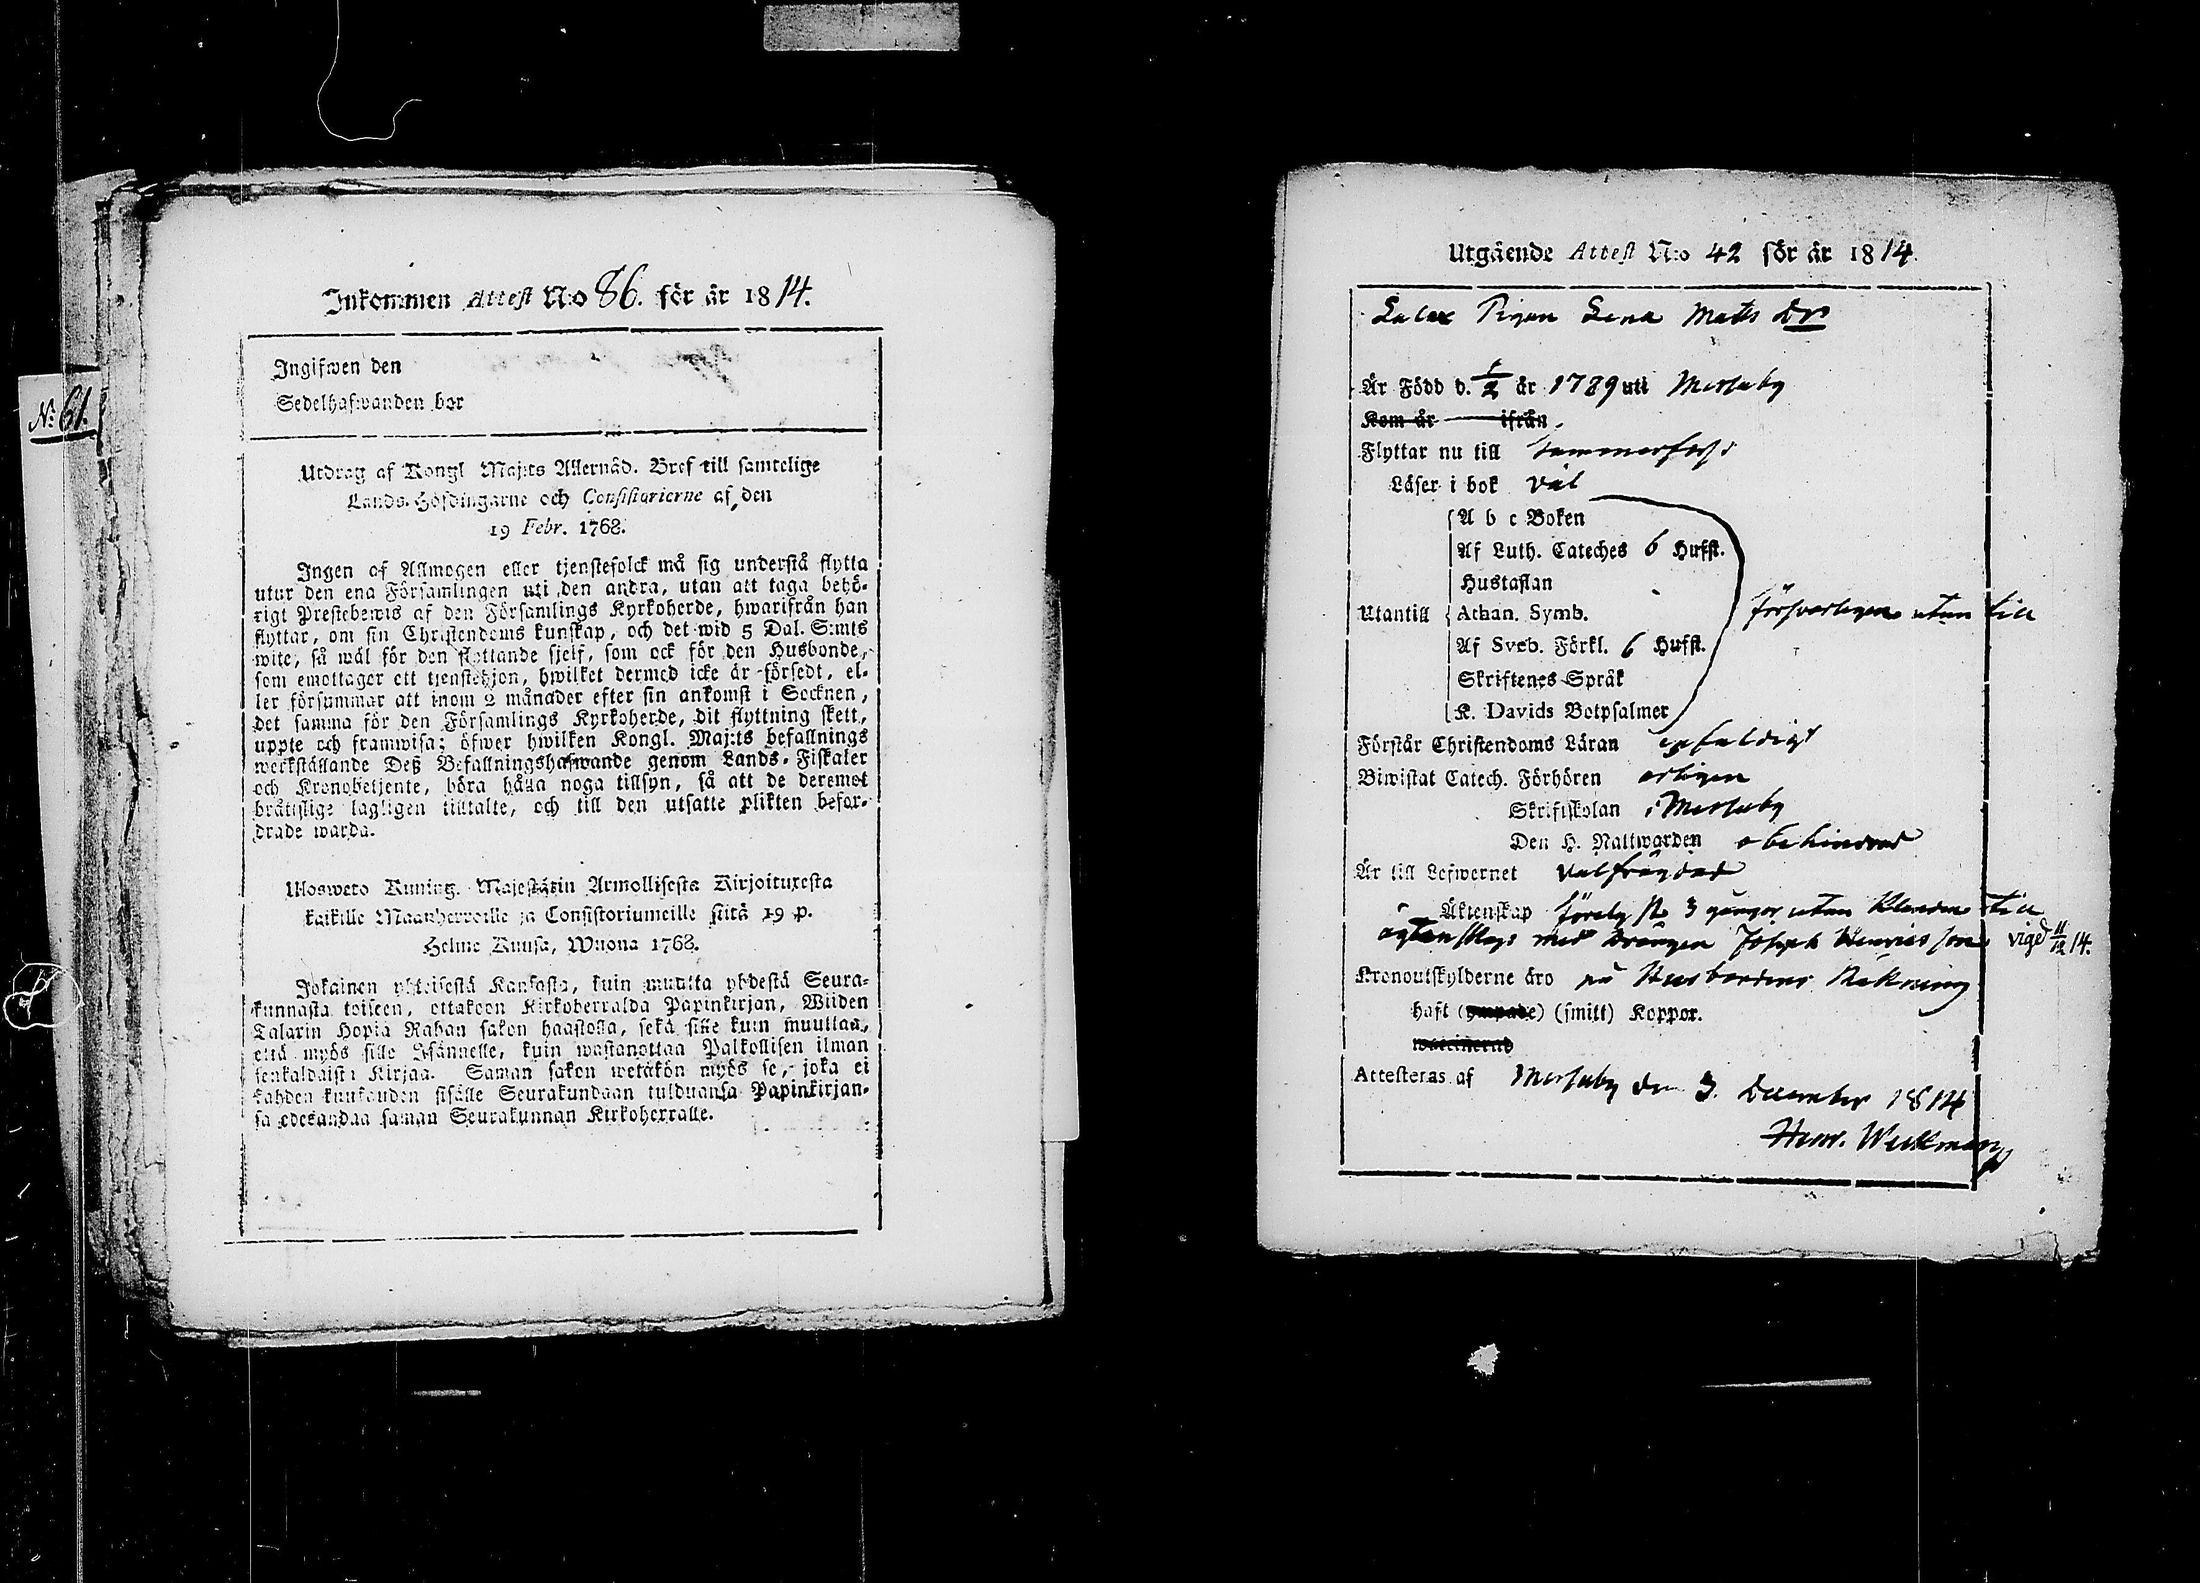 Inkommen Attest N:o 86. för år 1814.
Ingifwen den
Sedelhafwanden bor
N: 61.
Utdrag af Kongl Maj:ts Allernåd. Bref till samtelige
Lands-Höfdingarne och Consistorierne af den
19 Febr. 1768.
Ingen af Allmogen eller tjenstefolck må sig understå flytta
utur den ena Församlingen uti den andra, utan att taga behö-
rigt Prestebewis af den Församlings Kyrkoherde, hwarifrån han
flyttar, om sin Christendoms kunskap, och det wid 5 Dal. S:mts
wite, så wäl för den flyttande sjelf, som ock för den Husbonde,
som emottager ett tjenstehjon, hwilket dermed icke är försedt, el-
ler försummar att inom 2 månader efter sin ankomst i Socknen,
det samma för den Församlings Kyrkoherde, dit flyttning skett,
uppte och framwisa; öfwer hwilken Kongl. Maj:ts befallnings
werkställande Deß Befallningshafwande genom Lands-Fiskaler
och Kronobetjente, böra hålla noga tillsyn, så att de deremot
brätslige lagligen tilltalte, och till den utsatte plikten befor-
drade warda.
Ulosweto Kuning. Majestätin Armollisesta Kirjoituxesta
kaikille Maanherroille ja Consistoriumeille siitä 19 p.
Helme Kuusa, Wuona 1768.
Jokainen yhteisestä Kansasta, kuin muutta yhdestä Seura-
kunnasta toiseen, ottakoon Kirkoherralda Papinkirjan, Wiiden
Talarin Hopia Rahan sakon haastolla, sekä sille kuin muuttaa,
että myös sille Isännelle, kuin wastanottaa Palkollisen ilman
senkaldaista Kirjaa. Saman sakon wetäkön myös se, joka ei
kahden kuukauden sisälle Seurakundaan tulduansa Papinkirjan-
sa edesandaa saman Seurakunnan Kirkoherralle.
Utgående Attest N:o 42 för år 1814.
Pigan Lena Mats Dr
Är Född d. /2 år 1789 uti Mersuby
Kom år ifrån
Flyttar nu till
Läser i bok väl
A b c Boken
Af Luth. Cateches 6 Hufst.
Hustaflan
Utantill Athan. Symb. försvarligen utan till
Af Sveb. Förkl. 6 Hufst.
Skriftenes Språk
K. Davids Botpsalmer
Förstår Christendoms Läran enfaldigt
Biwistat Catech. Förhören årligen
Skriftskolan i Mersuby
Den H. Nattwarden obehindrad
Är till Lefwernet välfrägdad
Äktenskap förelyst 3 gånger utan klander till
ägtenskap med Drängen Joseph Henricsson vigd 11/12 14.
Kronoutskylderne äro på Husbondens Räkning
haft (ympade) (smitt) Koppor.
waccinerad
Attesteras af Mersuby den 3. December 1814
Henr. Weckman